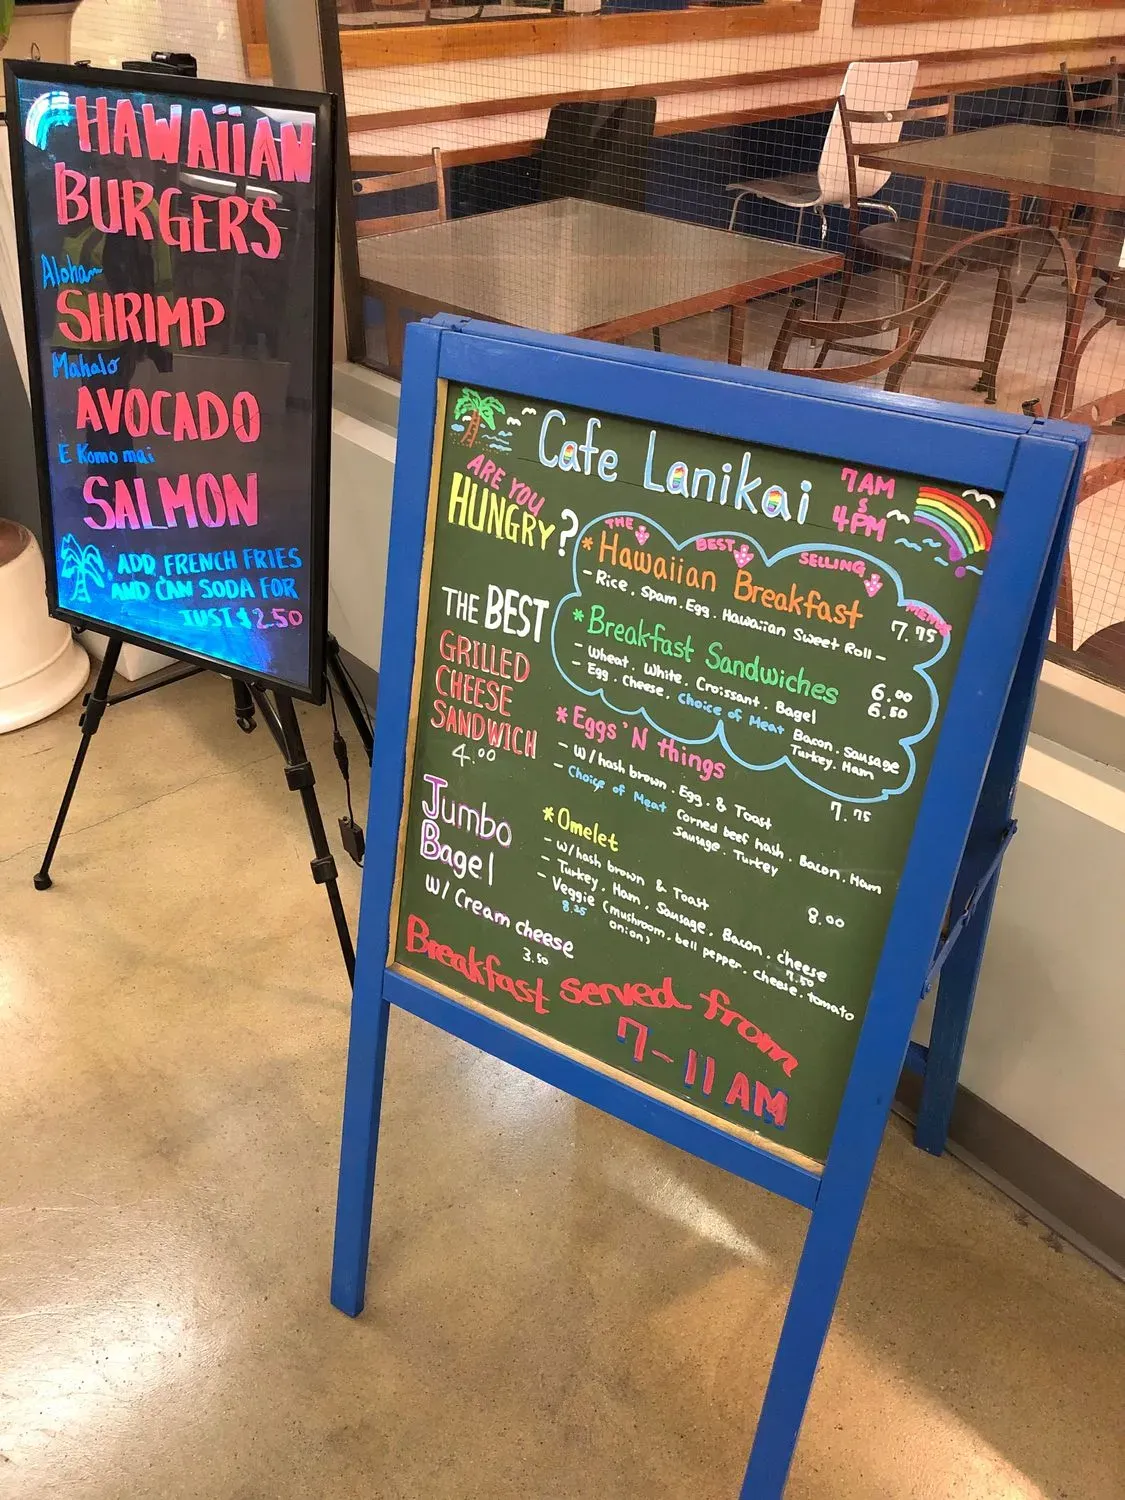 HAWAiiAN
BURGERS
Aloha
SHRIMP
Mahalo
AVOCADO
E Komo mai
SALMON
ADD FRENCH FRIES
AND CAN SODA FOR
JUST $2.50
Cafe Lanikai
7AM
S
4PM
ARE YOU
HUNGRY?
THE BEST SELLING MENU
* Hawaiian Breakfast
- Rice. Spam. Egg. Hawaiian Sweet Roll -
7.75
* Breakfast Sandwiches
- Wheat. White. Croissant. Bagel
6.00
- Egg. Cheese. Choice of Meat Bacon. Sausage
6.50
Turkey. Ham
* Eggs 'N things
- w/hash brown. Egg. & Toast
7.75
- Choice of Meat Corned beef hash. Bacon. Ham
Sausage. Turkey
* Omelet
- w/hash brown & Toast
8.00
- Turkey. Ham. Sausage. Bacon. cheese
7.50
- Veggie (mushroom. bell pepper. cheese. tomato
8.25
onion)
THE BEST
GRILLED
CHEESE
SANDWICH
4.00
Jumbo
Bagel
w/ Cream cheese
3.50
Breakfast served from
7-11 AM